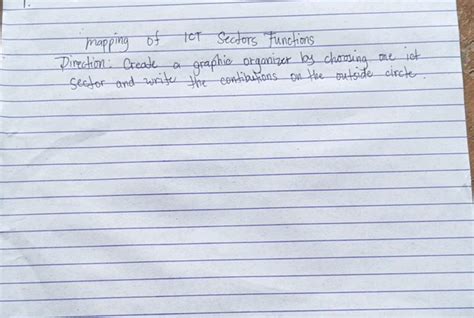 1.
mapping of ICT Sectors Functions
Direction: Create a graphic organizer by choosing one ict
sector and write the contibutions on the outside circle.